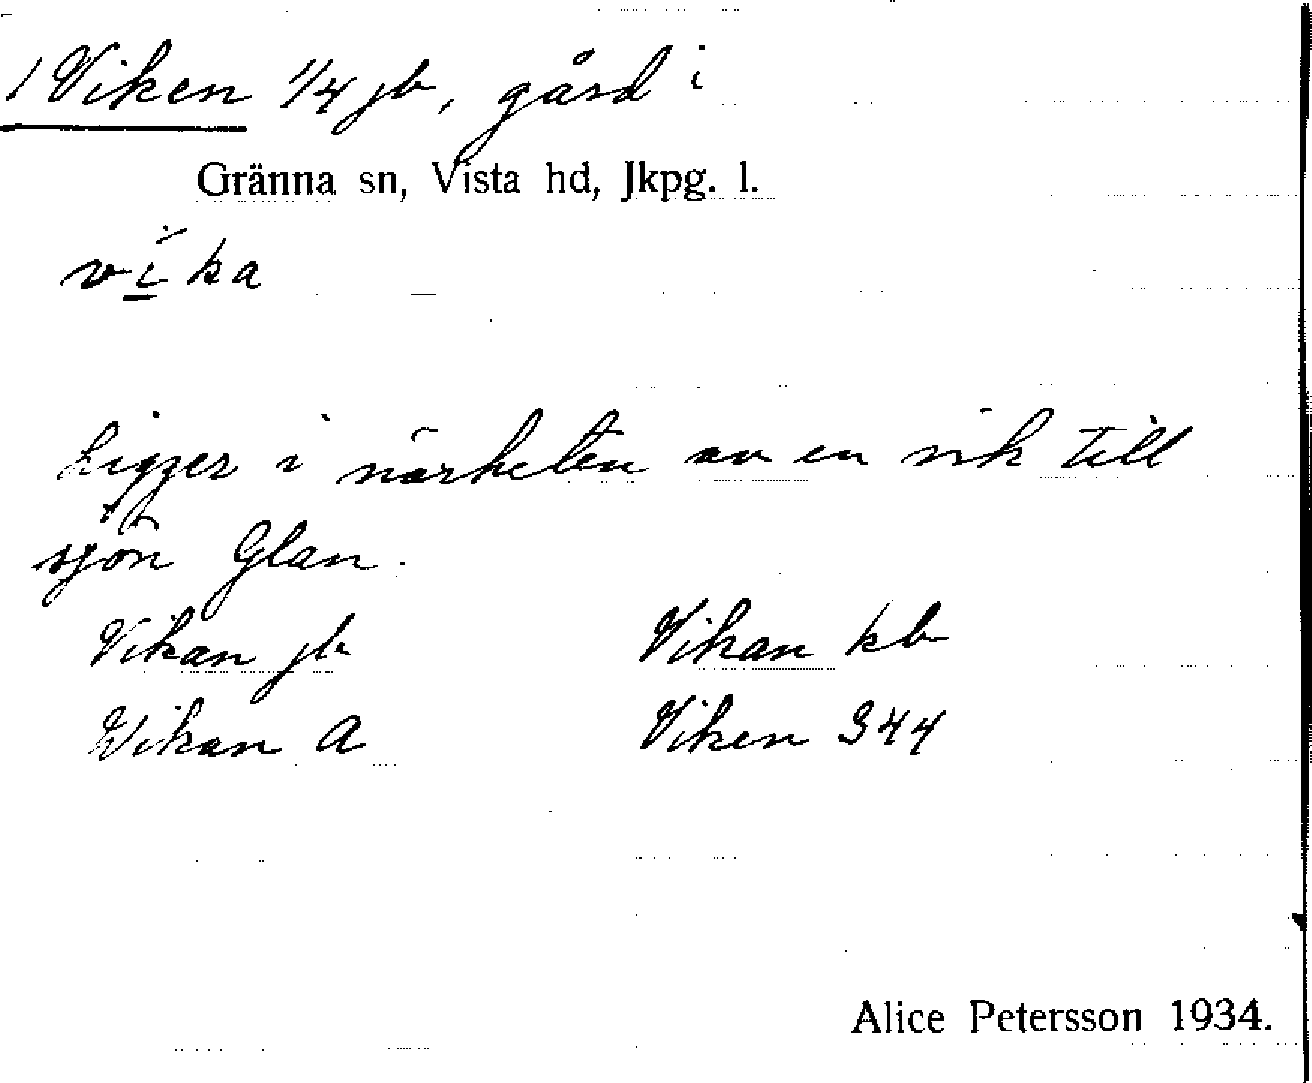 1 Viken 1/4 jb, gård i
Gränna sn, Vista hd, Jkpg. l.
vi̲ka
Ligger i närheten av en vik till
sjön Glan.
Vikan jb Vikan kb
Wikan A Viken S44
Alice Petersson 1934.